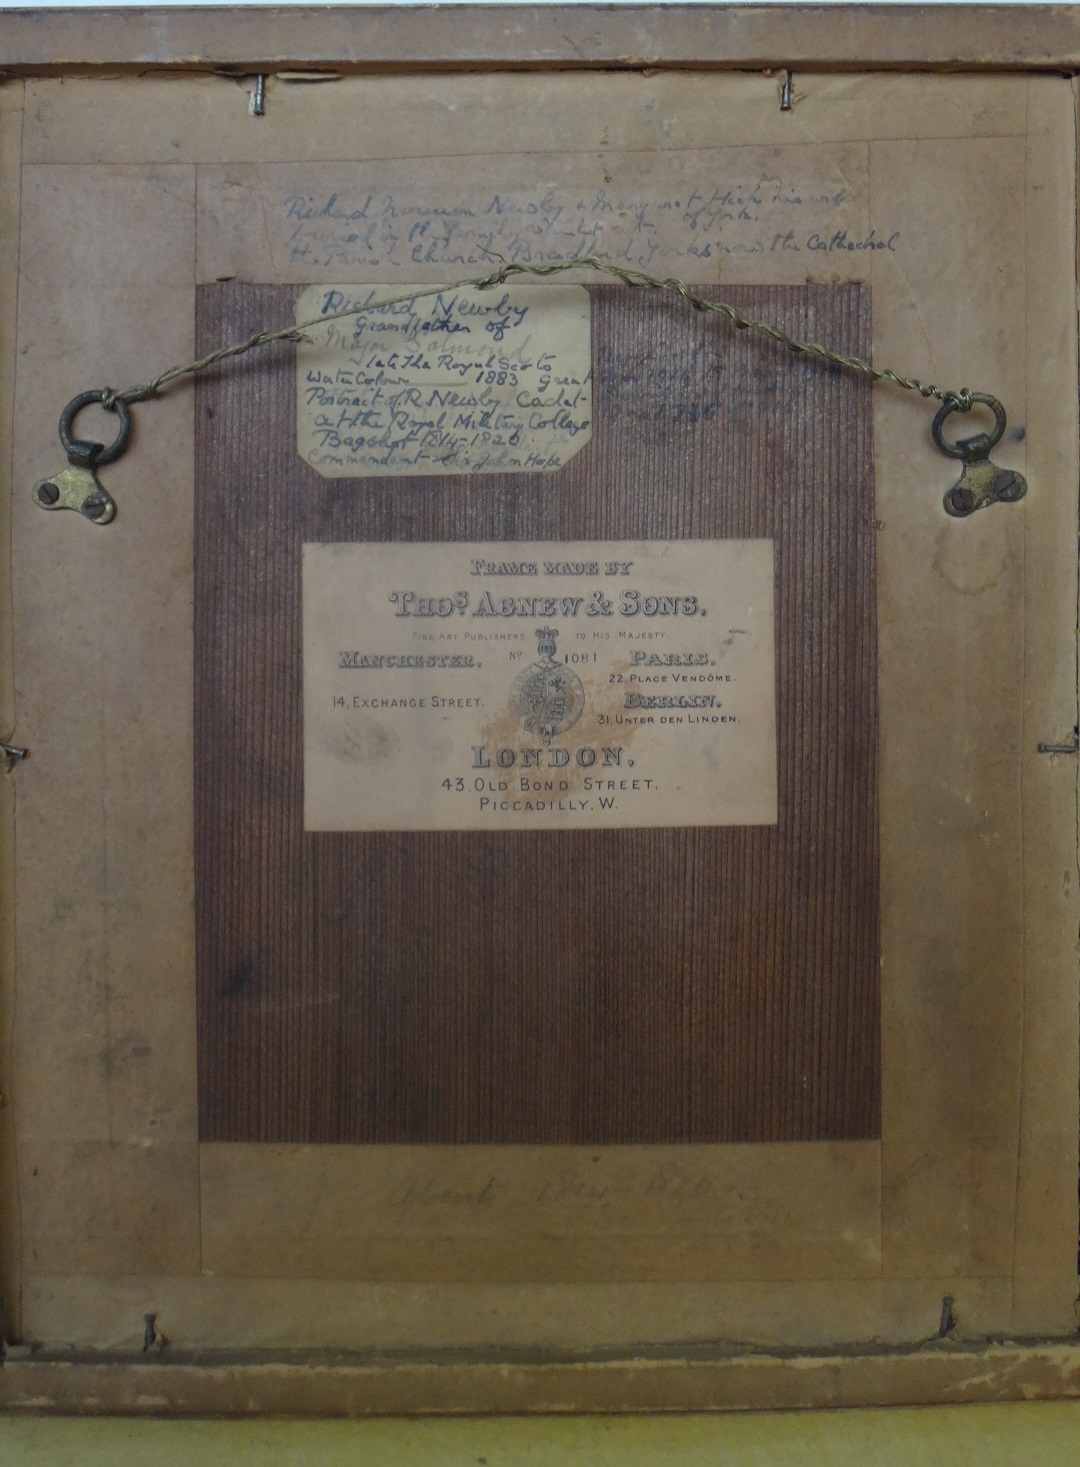 Richard Norman Newby & Margaret Hick his wife
of York.
buried in the family vault at
the Parish Church, Bradford, Yorks now the Cathedral
Richard Newby
Grandfather of
Major Salmond
late the Royal Scots
Water Colour 1883 Great
Portrait of R. Newby Cadet
at the Royal Military College
Bagshot 1814-1820.
Commandant Sir John Hope
FRAME MADE BY
THOS. AGNEW & SONS.
FINE ART PUBLISHERS TO HIS MAJESTY.
MANCHESTER. No 1081 PARIS.
22, PLACE VENDÔME.
14, EXCHANGE STREET. BERLIN.
31, UNTER DEN LINDEN.
LONDON.
43, OLD BOND STREET,
PICCADILLY, W.
About 1814 1820